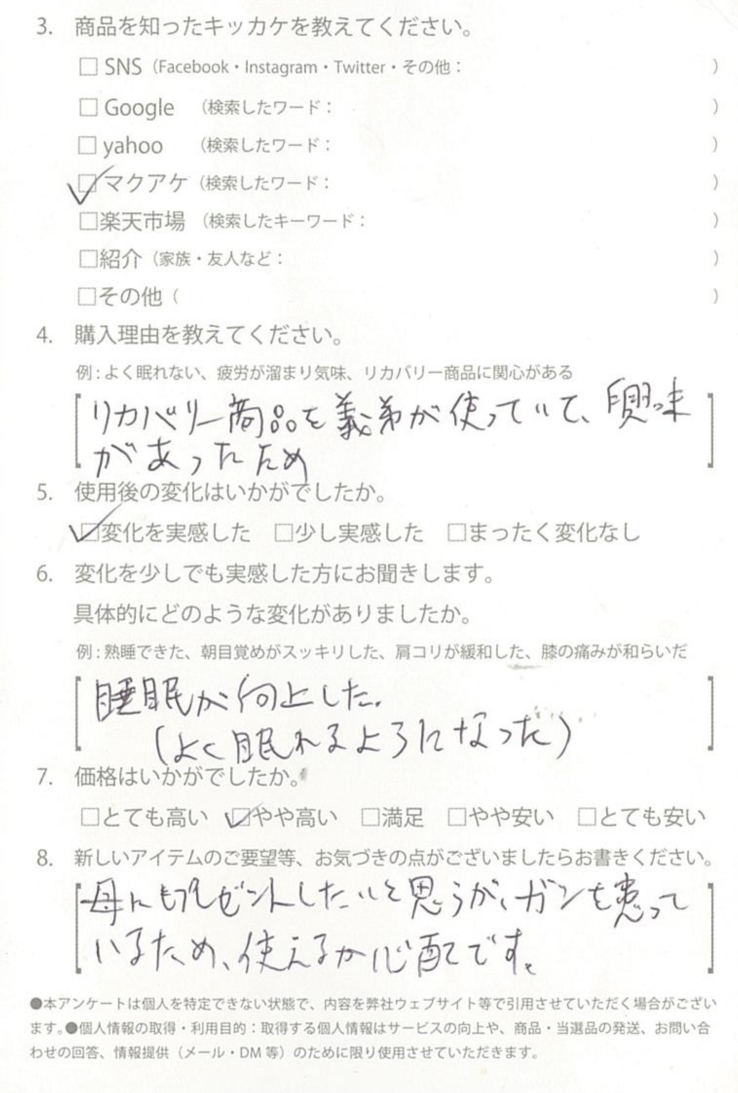 3. 商品を知ったキッカケを教えてください。
□ SNS（Facebook・Instagram・Twitter・その他： ）
□ Google （検索したワード： ）
□ yahoo （検索したワード： ）
☑ マクアケ（検索したワード： ）
□楽天市場 （検索したキーワード： ）
□紹介（家族・友人など： ）
□その他（ ）
4. 購入理由を教えてください。
例：よく眠れない、疲労が溜まり気味、リカバリー商品に関心がある
リカバリー商品を義弟が使っていて、興味
があったため
5. 使用後の変化はいかがでしたか。
☑変化を実感した □少し実感した □まったく変化なし
6. 変化を少しでも実感した方にお聞きします。
具体的にどのような変化がありましたか。
例：熟睡できた、朝目覚めがスッキリした、肩コリが緩和した、膝の痛みが和らいだ
睡眠が向上した。
（よく眠れるようになった）
7. 価格はいかがでしたか。
□とても高い ☑やや高い □満足 □やや安い □とても安い
8. 新しいアイテムのご要望等、お気づきの点がございましたらお書きください。
母にもプレゼントしたいと思うが、ガンを患って
いるため、使えるか心配です。
●本アンケートは個人を特定できない状態で、内容を弊社ウェブサイト等で引用させていただく場合がござい
ます。●個人情報の取得・利用目的：取得する個人情報はサービスの向上や、商品・当選品の発送、お問い合
わせの回答、情報提供（メール・DM 等）のために限り使用させていただきます。